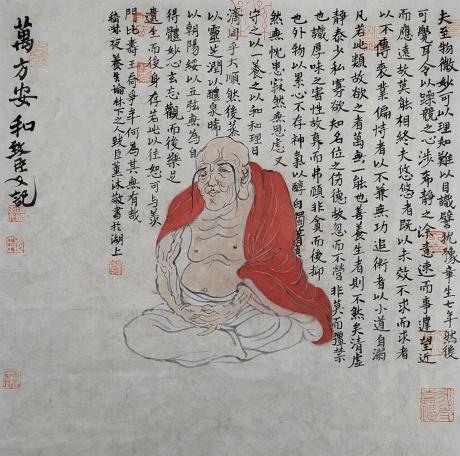 夫至物微妙可以理知難以目識譬犹豫章生七年然後
可覺耳令以躁競之心涉希静之塗意速而事遲望近
而應遠故莫能相終夫悠悠者既以未效不求而求者
以不專喪業偏恃者以不兼無功追術者以小道自溺
凡若此類故欲之者萬無一能也善養生者則不然矣清虚
静泰少私寡欲知名位之傷德故忽而不營非莫而彊禁
也識厚味之害性故弃而弗顧非貪而後抑
也外物以累心不存神氣以醇白獨著
然無忧患寂然無思慮又
守之以一養之以和和理日
濟同乎大順然後蒸
以靈芝潤以醴泉晞
以朝陽綏以五弦無為自
得體妙心玄忘觀而後樂足
遺生而後身存若此以往恕可与羡
门比壽王喬爭年何為其無有哉
養生論林下人致臣沐敬書於湖上
萬方安和致臣又記